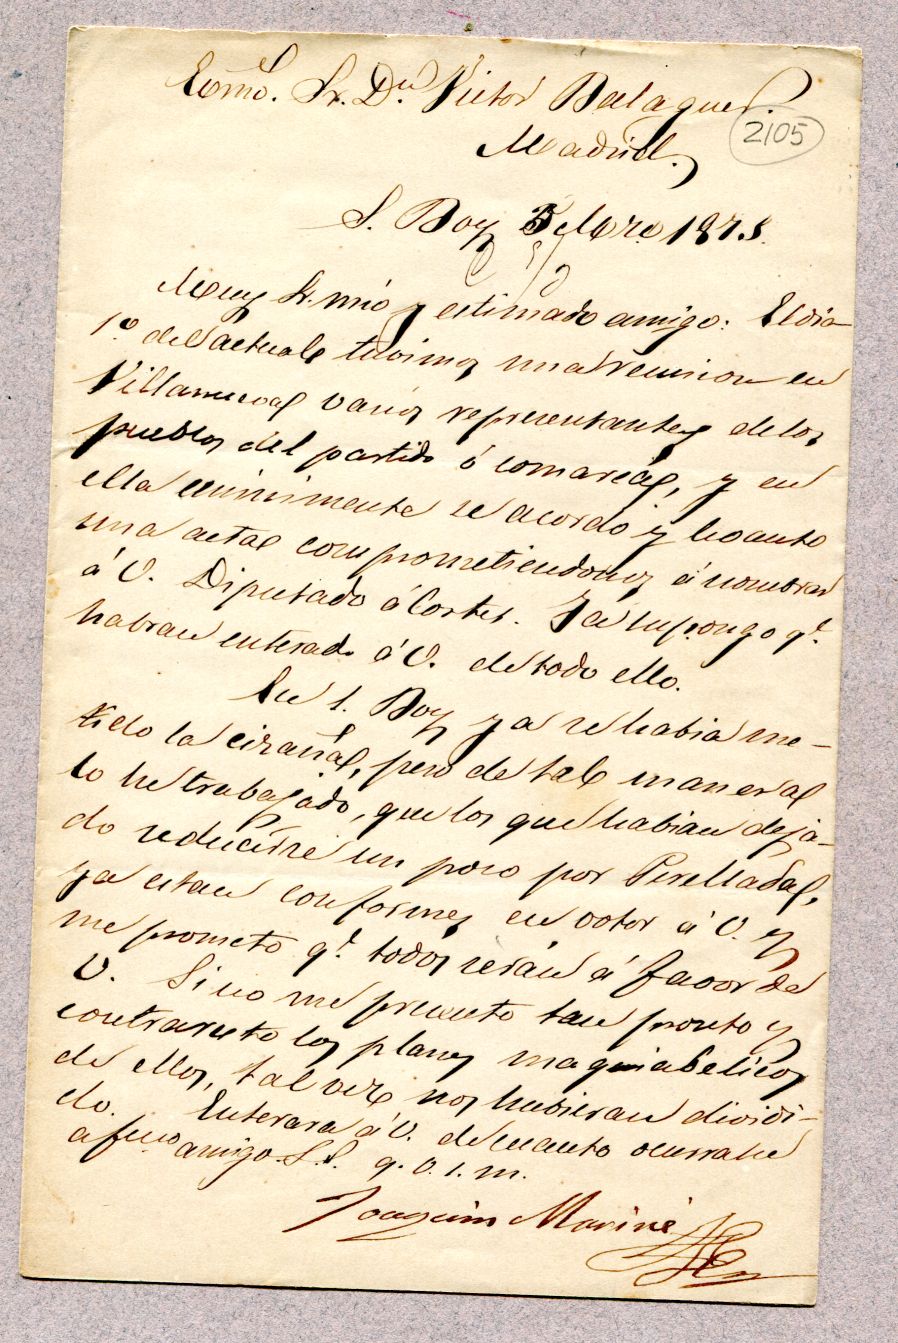 Exmo. Sr. Dn. Victor Balaguer.
2105
Madrid.
S. Boy 5 Mzo 1873.
Muy Sr. mio y estimado amigo: El dia
1º del actual tuvimos una reunion en
Villanueva varios representantes de los
pueblos del partido ó comarca, y en
ella se acordó y levanto
una acta comprometiendonos á nombrar
á V. Diputado á Cortes. Ya supongo q.e
habran enterado á V. de todo ello.
En S. Boy ya se habia me-
tido la cizaña, pero de tal manera
lo he trabajado, que los que habian deja-
do seducirse un poco por Perellada,
ya estan conformes en votar á V. y
me prometo q.e todos serán á favor de
V. Si no me presento tan pronto y
contraresto los planes maquiabelicos
de ellos, tal vez nos hubieran dividi-
do. Enterara á V. de cuanto ocurra su
afmo amigo S.S. q. b. s. m.
Joaquin Mariné